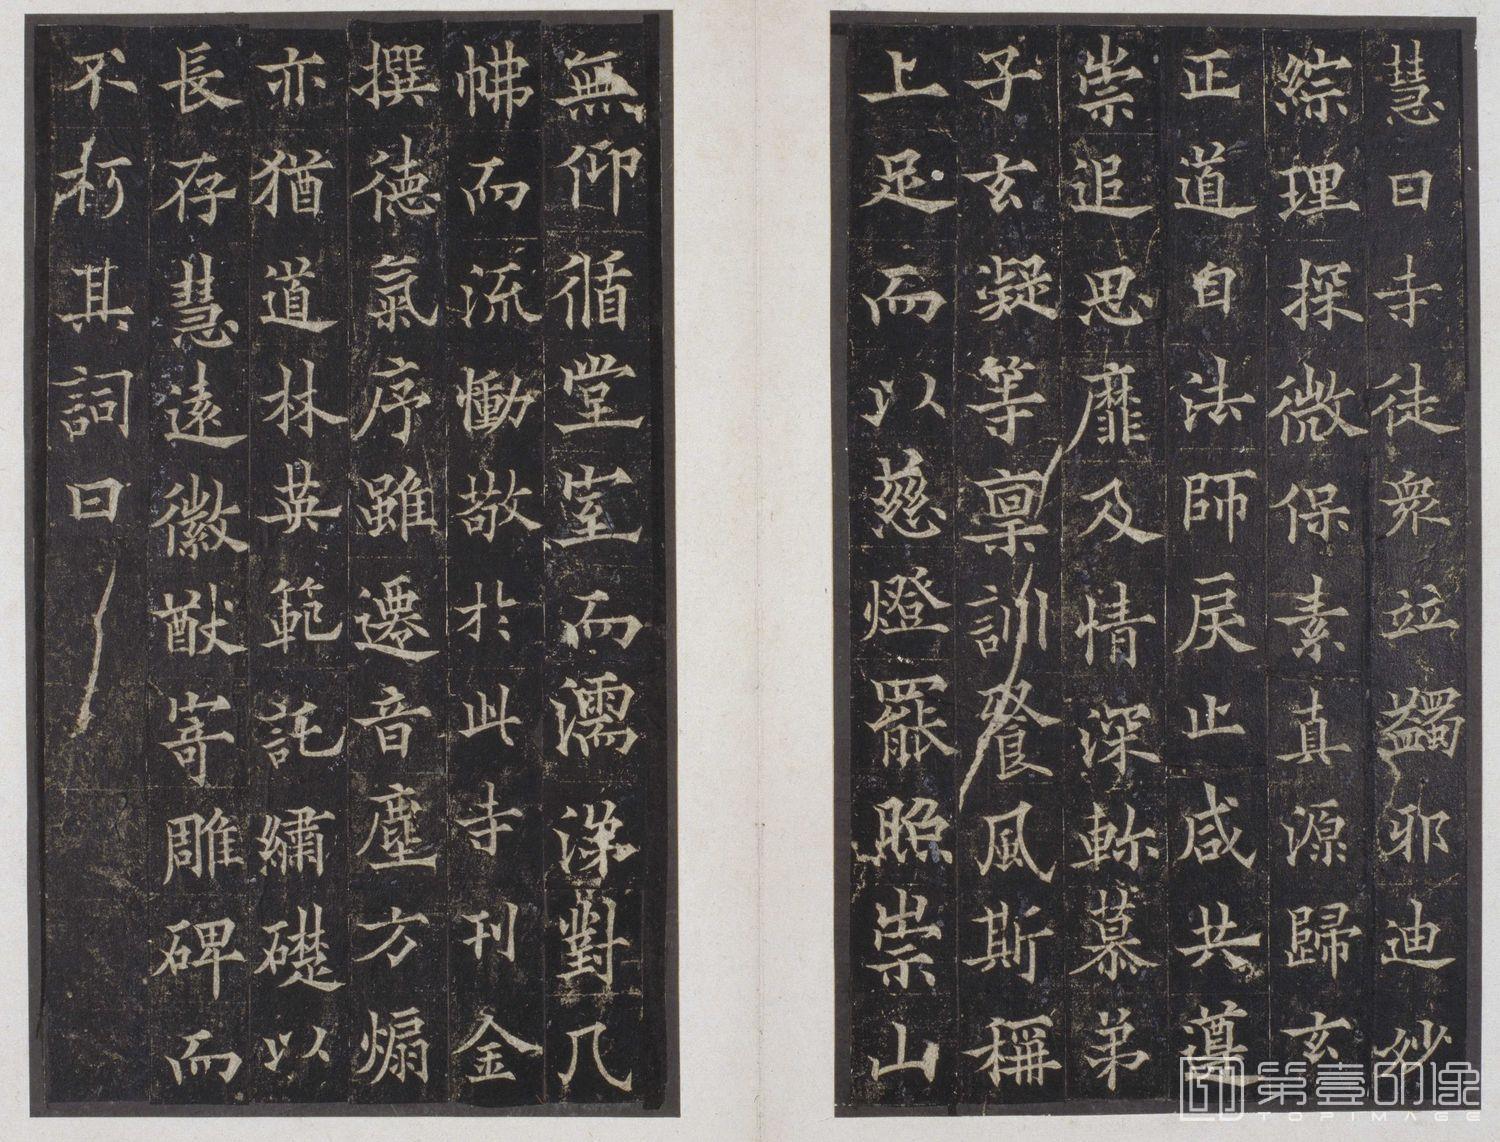 慧曰寺徒衆竝蠲邪迪妙
綜理探微保素真源歸玄
正道自法師戾止咸共遵
崇追思靡及情深軫慕弟
子玄凝等稟訓飡風斯稱
上足而以慈燈罷照崇山
無仰循堂室而濡涕對几
怫而流慟敬於此寺刊金
撰德氣序雖遷音塵方煽
亦猶道林英範託繡礎以
長存慧遠徽猷寄雕碑而
不朽其詞曰
第壹印像
TOPIMAGE